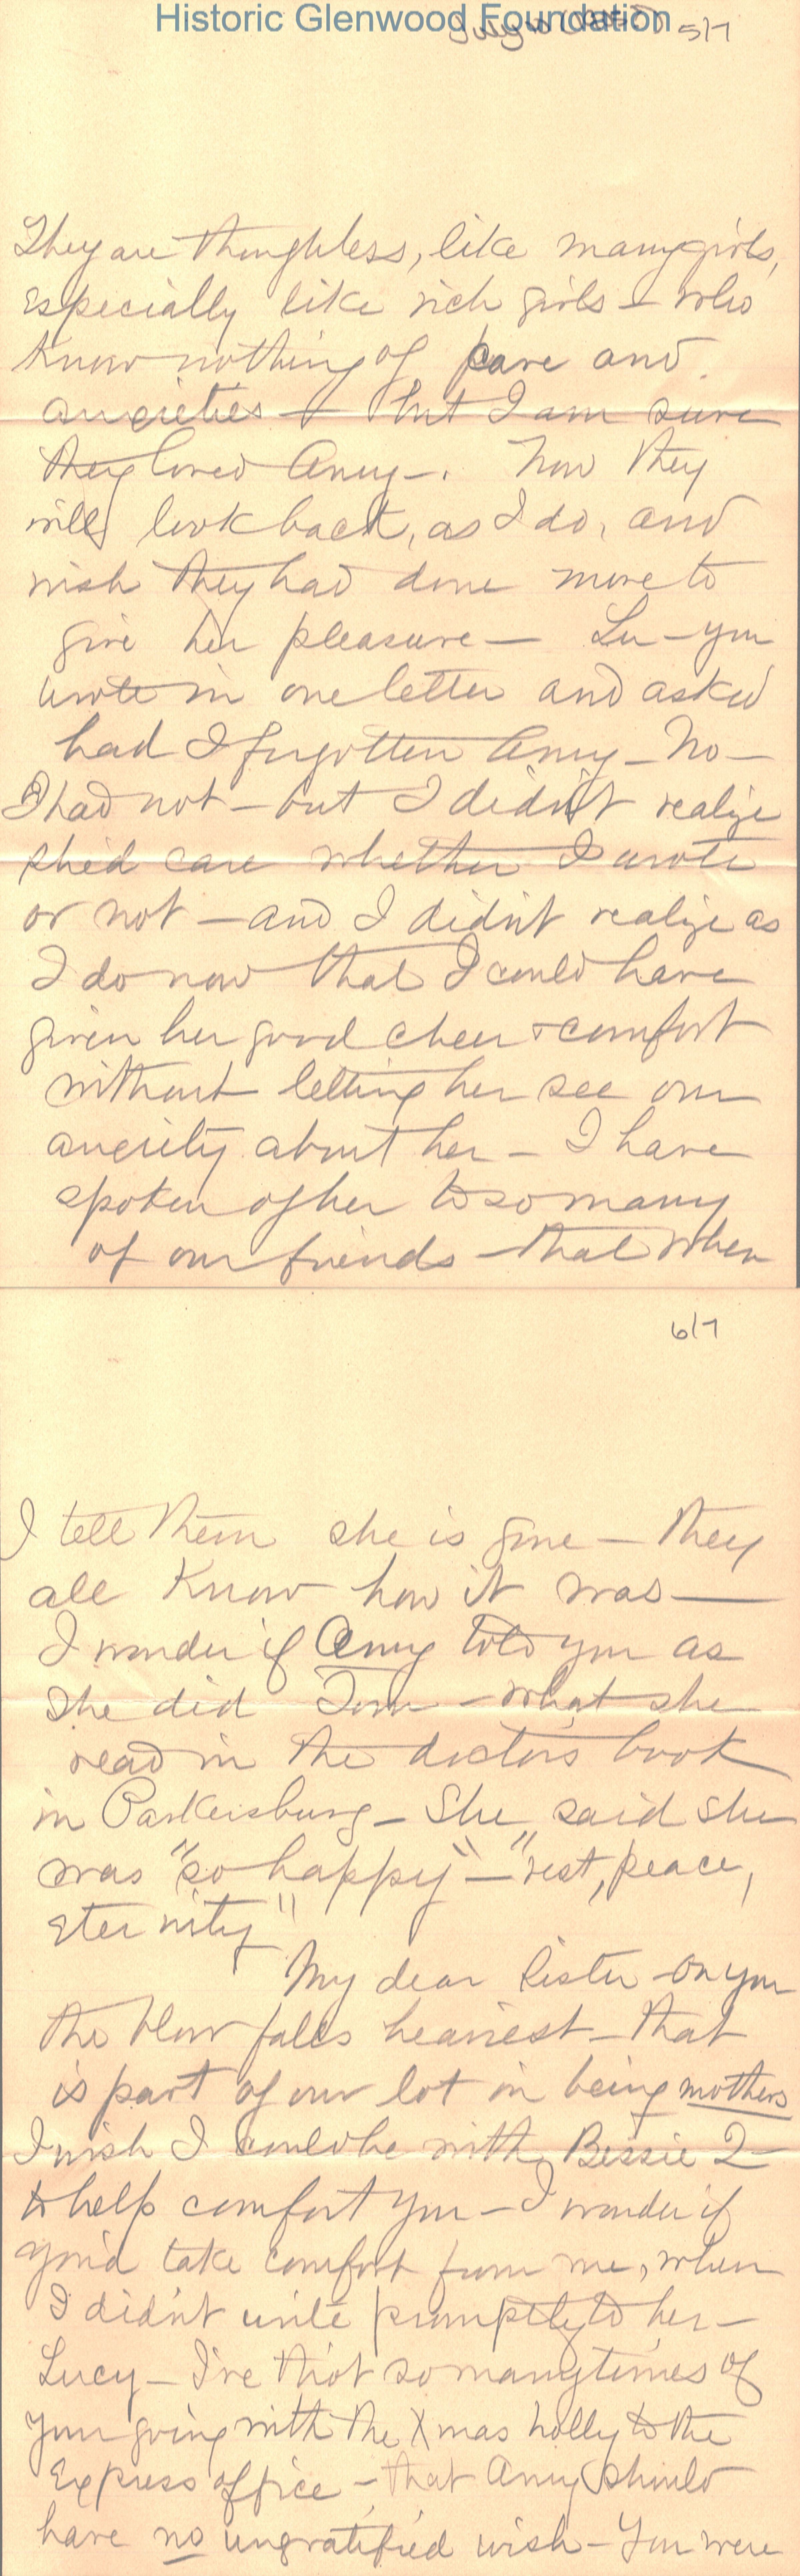 Historic Glenwood Foundation
5/7
They are thoughtless, like many girls,
especially like rich girls - who
know nothing of care and
anxieties - but I am sure
they loved Amy -. Now they
will look back, as I do, and
wish they had done more to
give her pleasure - Lu - you
wrote in one letter and asked
had I forgotten Amy - No -
I had not - but I didn't realize
she'd care whether I wrote
or not - and I didn't realize as
I do now that I could have
given her good cheer & comfort
without letting her see our
anxiety about her - I have
spoken of her to so many
of our friends - that when
6/7
I tell them she is gone - they
all know how it was -
I wonder if Amy told you as
she did Tom - what she
read in the doctors book
in Parkersburg - She said she
was "so happy" - "rest, peace,
eternity"
My dear sister - on you
the blow falls heaviest - that
is part of our lot in being mothers
I wish I could be with Bessie 2 -
to help comfort you - I wonder if
you'd take comfort from me, when
I didn't write promptly to her -
Lucy - I've tho't so many times of
your going with the Xmas holly to the
Express office - that Amy should
have no ungratified wish - You were